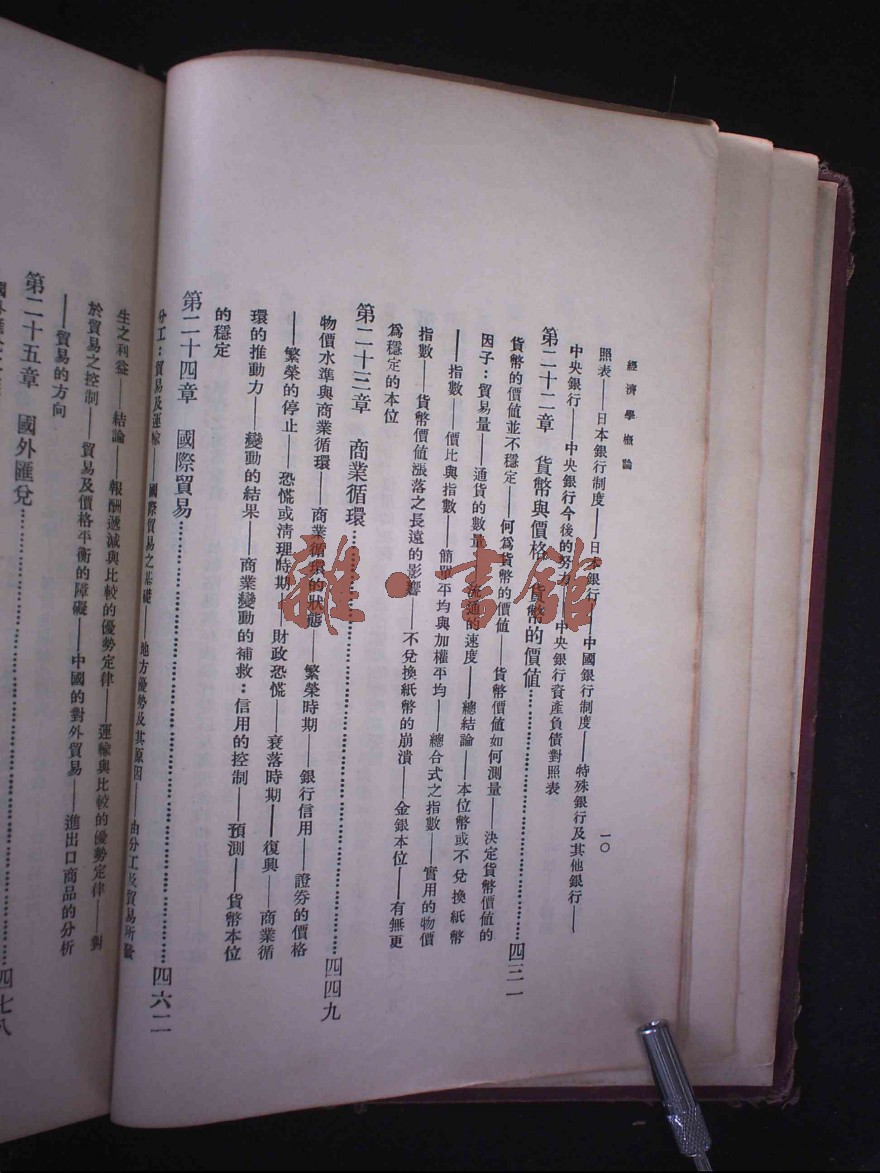 經濟學概論
一〇
照表——日本銀行制度——日本銀行——中國銀行制度——特殊銀行及其他銀行——
中央銀行——中央銀行今後的努力——中央銀行資產負債對照表
第二十二章 貨幣與價格 貨幣的價值……四三一
貨幣的價值並不穩定——何爲貨幣的價值——貨幣價値如何測量——決定貨幣價値的
因子：貿易量——通貨的數量——流通的速度——總結論——本位幣或不兌換紙幣
——指數——價比與指數——簡單平均與加權平均——總合式之指數——實用的物價
指數——貨幣價値漲落之長遠的影響——不兌換紙幣的崩潰——金銀本位——有無更
爲穩定的本位
第二十三章 商業循環……四四九
物價水準與商業循環——商業循環的狀態——繁榮時期——銀行信用——證券的價格
——繁榮的停止——恐慌或清理時期——財政恐慌——衰落時期——復興——商業循
環的推動力——變動的結果——商業變動的補救：信用的控制——預測——貨幣本位
的穩定
第二十四章 國際貿易……四六二
分工：貿易及運輸——國際貿易之基礎——地方優勢及其原因——由分工及貿易所發
生之利益——結論——報酬遞減與比較的優勢定律——運輸與比較的優勢定律——對
於貿易之控制——貿易及價格平衡的障礙——中國的對外貿易——進出口商品的分析
——貿易的方向
第二十五章 國外匯兌……四七八
雜·書館